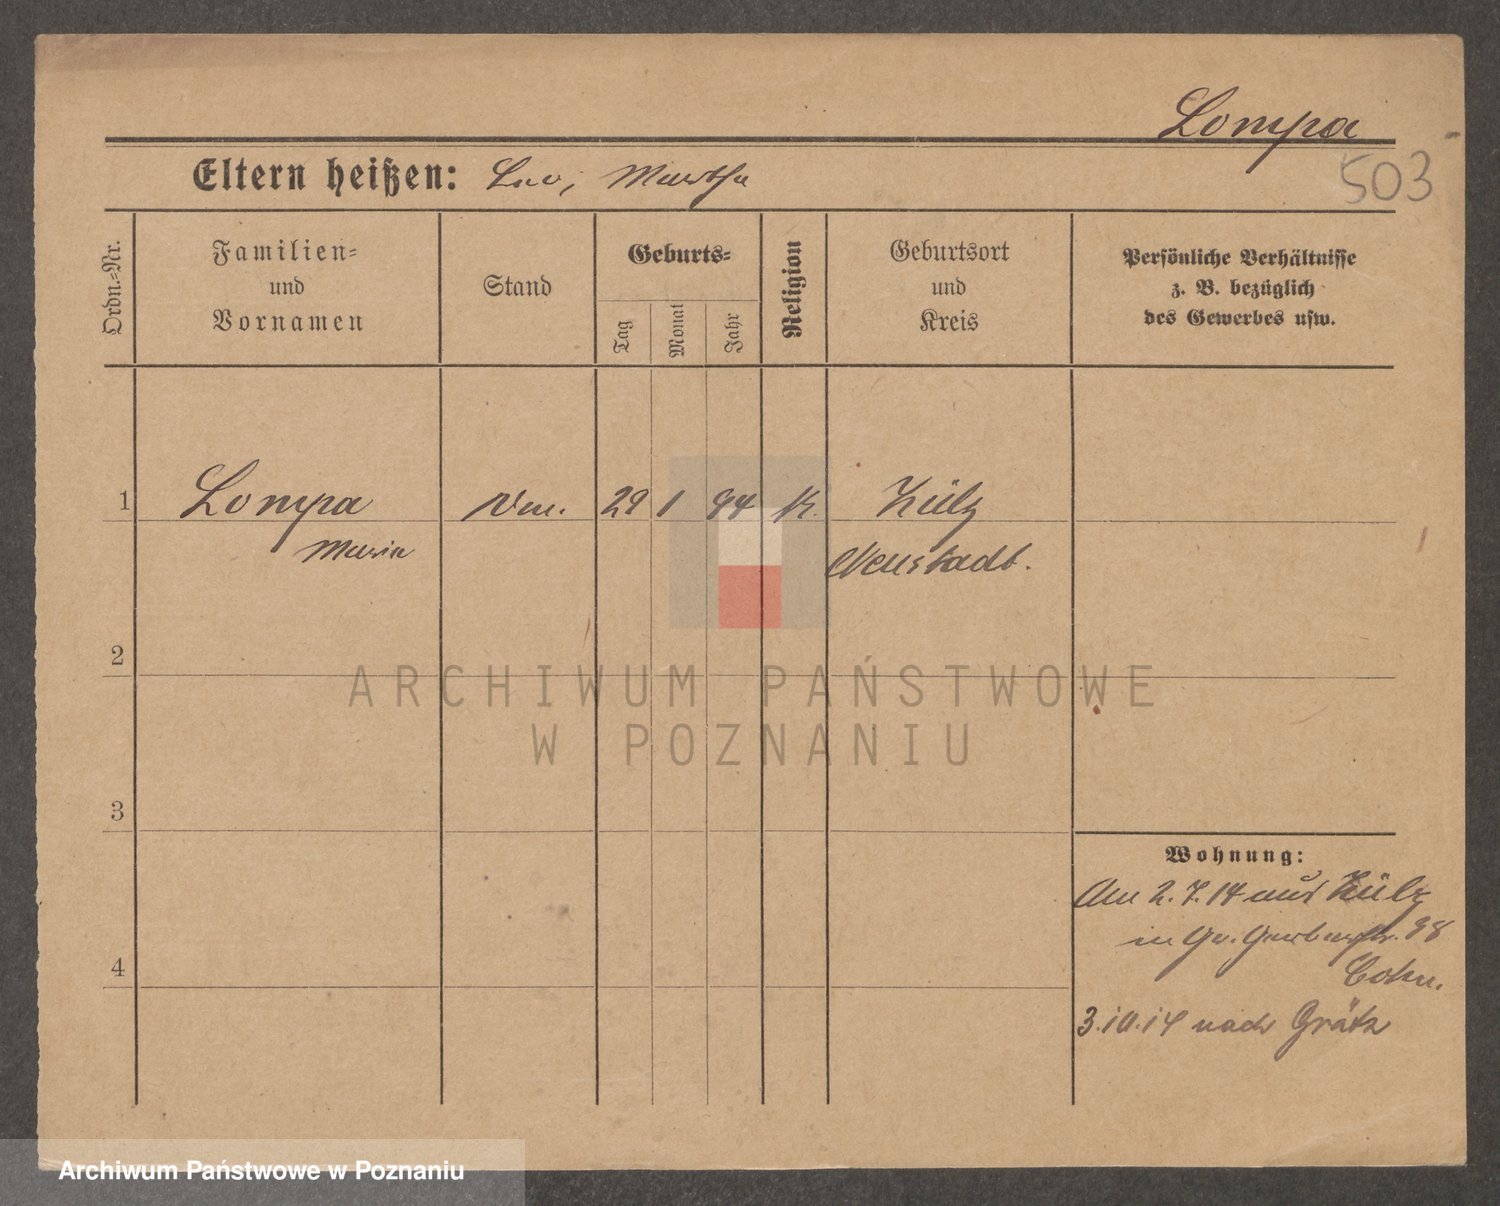 Lompa
503
Eltern heißen: Leo, Martha
Ordn.=Nr.
Familien=
und
Vornamen
Stand
Geburts=
Tag
Monat
Jahr
Religion
Geburtsort
und
Kreis
Persönliche Verhältnisse
z. B. bezüglich
des Gewerbes usw.
1 Lompa 29 1 94 k. Zülz
Maria Neustadt.
2
3
4
Wohnung:
Am 2.7.14 aus Zülz
in Gr. Gerberstr. 38
Cohn.
3.10.14 nach Grätz
ARCHIWUM PAŃSTWOWE
W POZNANIU
Archiwum Państwowe w Poznaniu